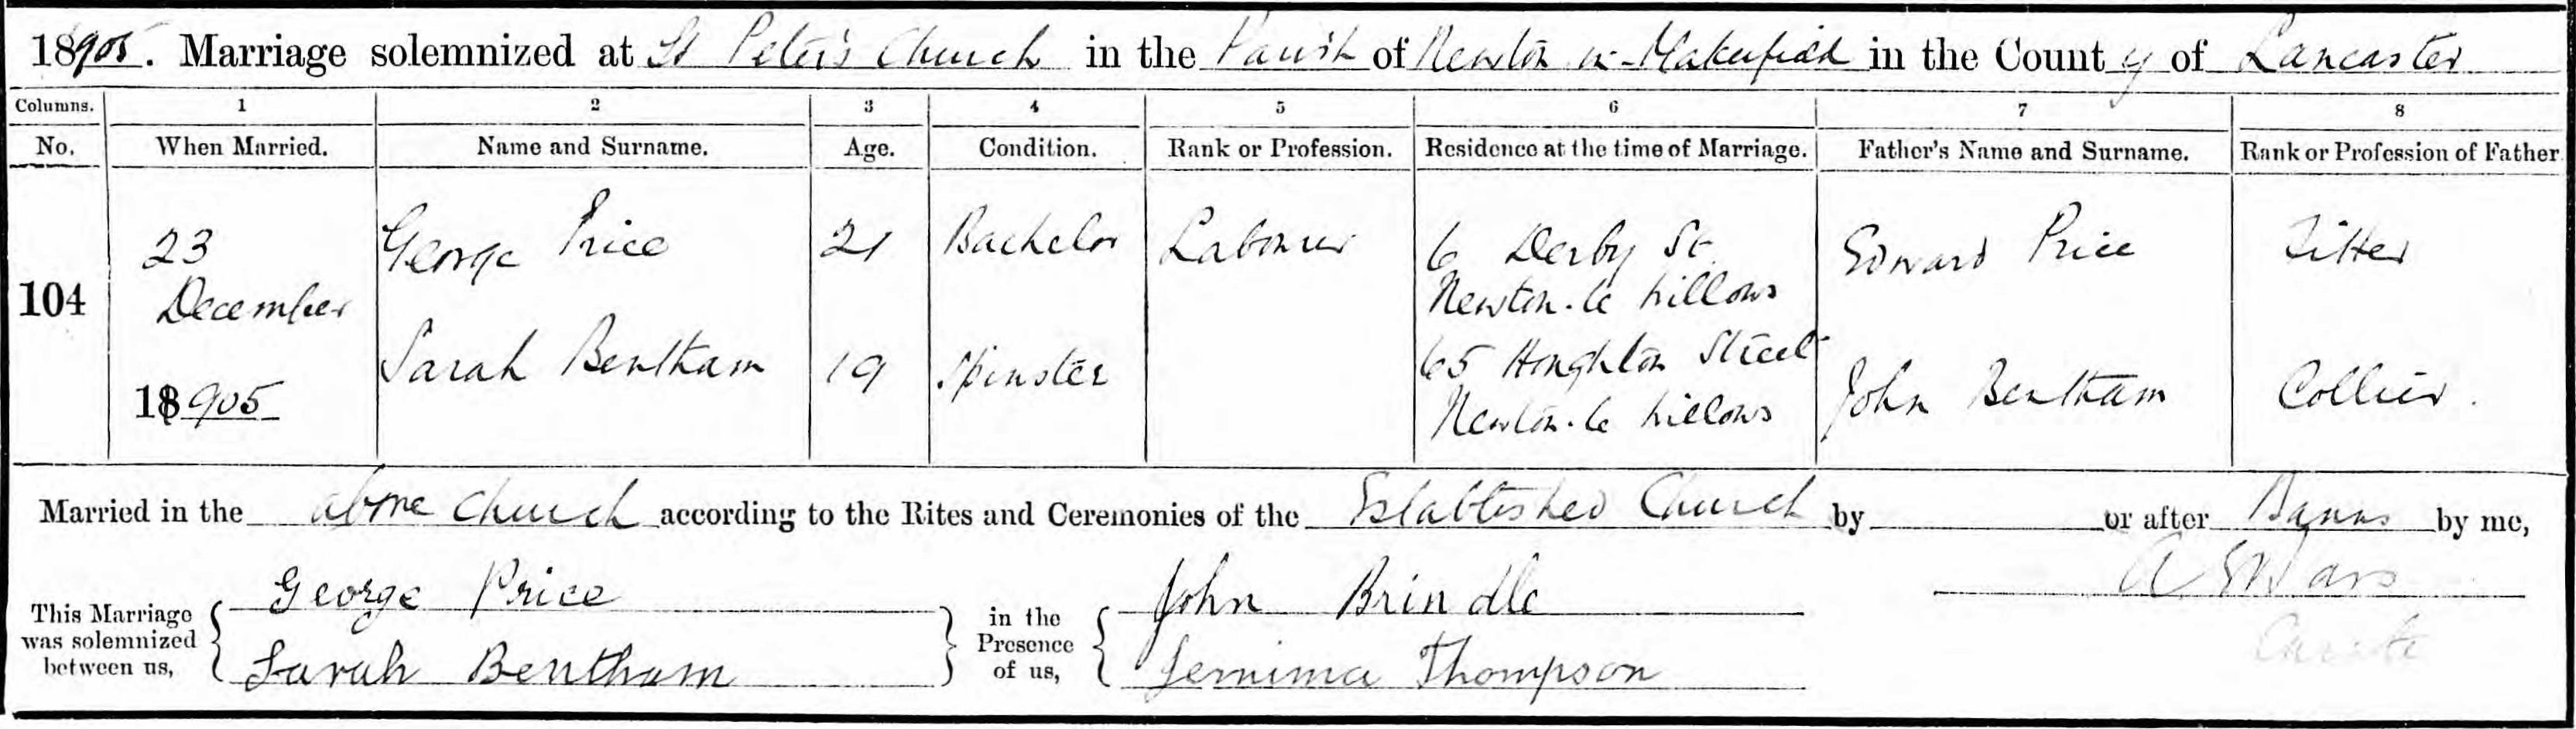 18905. Marriage solemnized at St Peter's Church in the Parish of Newton in Makerfield in the County of Lancaster
Columns. 1 2 3 4 5 6 7 8
No. When Married. Name and Surname. Age. Condition. Rank or Profession. Residence at the time of Marriage. Father's Name and Surname. Rank or Profession of Father
104 23 December 18905
George Price 21 Bachelor Labourer 6 Derby St. Newton-le Willows Edward Price Fitter
Sarah Bentham 19 Spinster 65 Houghton Street Newton-le Willows John Bentham Collier.
Married in the above Church according to the Rites and Ceremonies of the Established Church by or after Banns by me,
This Marriage was solemnized between us, George Price Sarah Bentham in the Presence of us, John Brindle Jemima Thompson
Curate